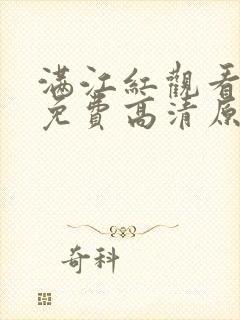 满江红觀看
免費高清原
奇科